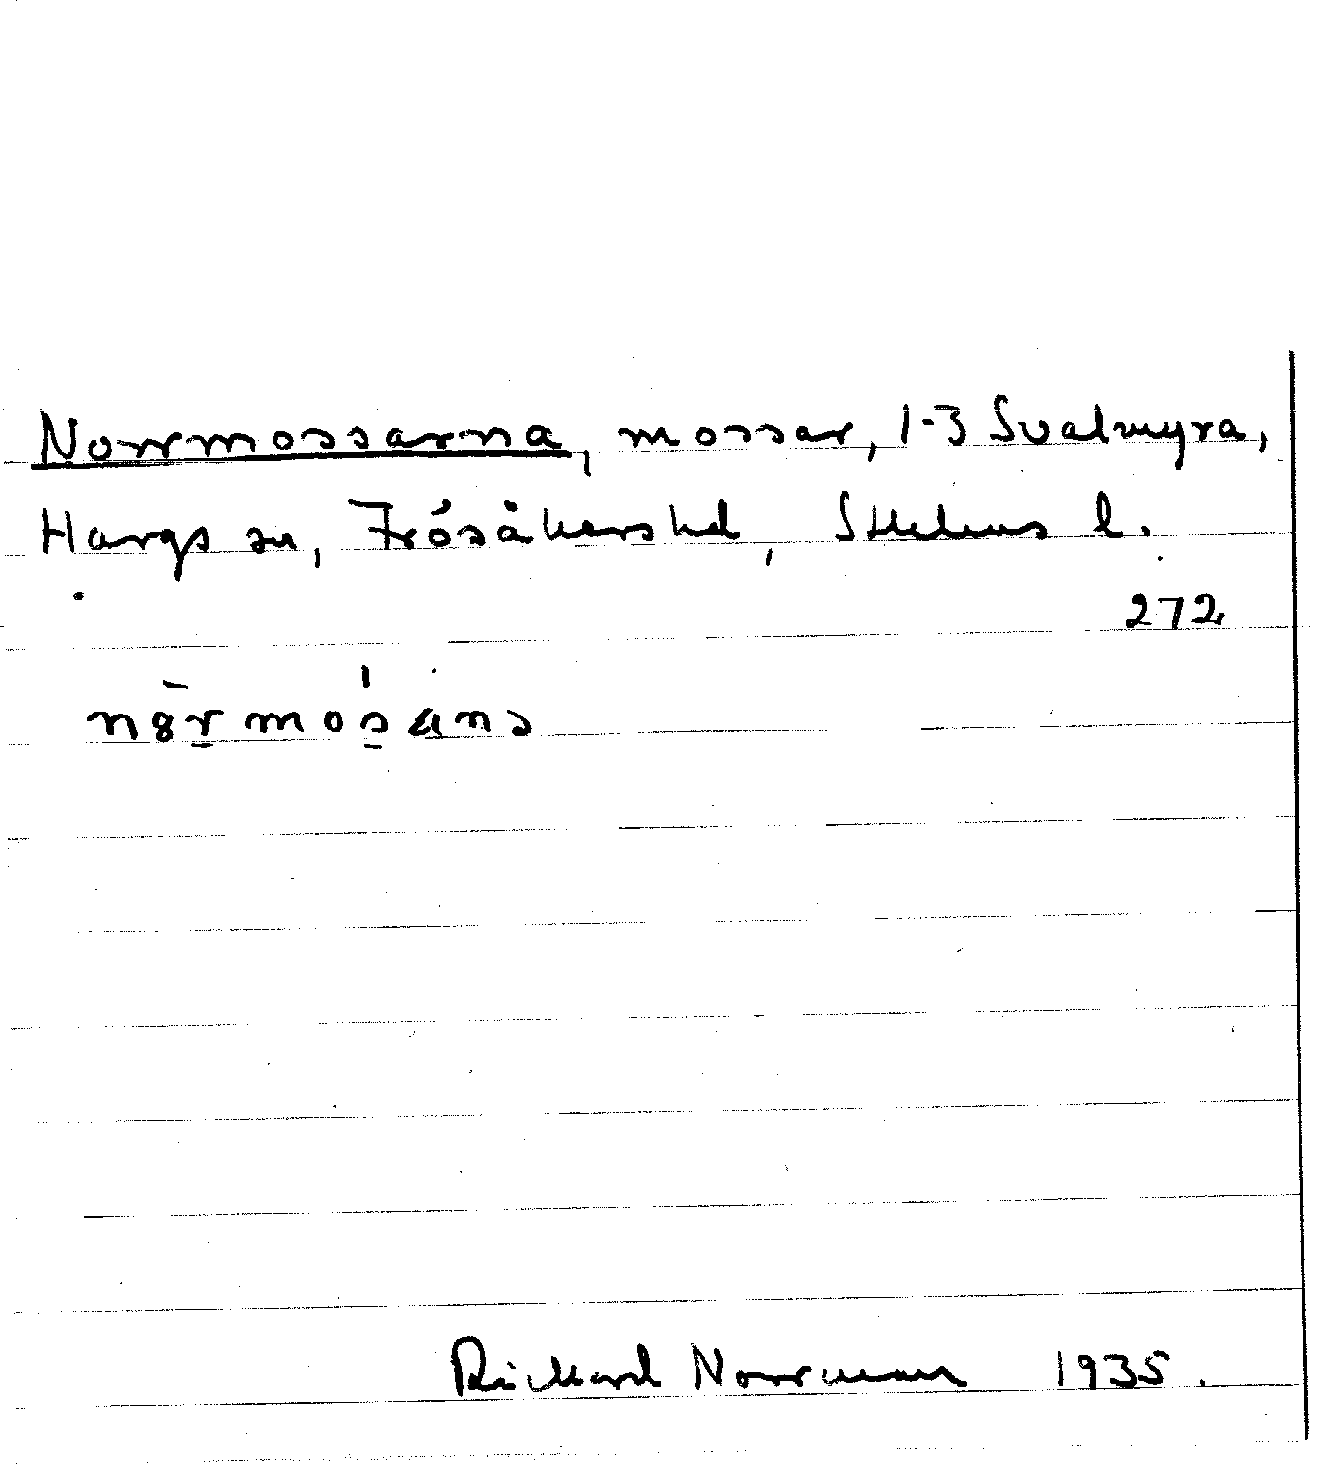 Norrmossarna, mossar, 1-3 Svalmyra,
Hargs sn, Frösåkers hd, Sthlms l.
272
Rickard Norrman 1935.